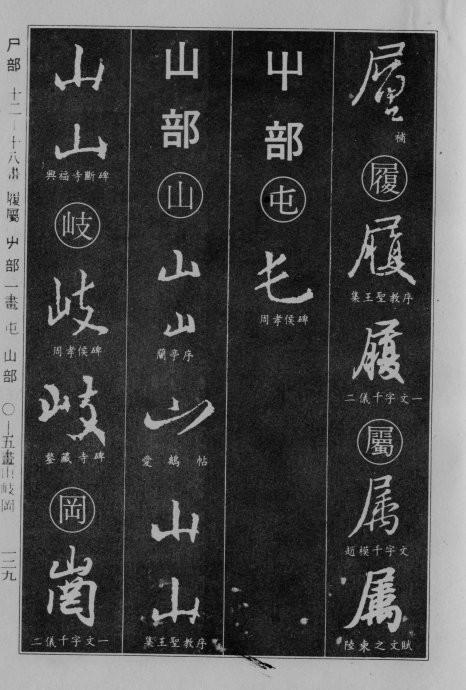 層
補
履
履
集王聖教序
履
二儀千字文一
屬
属
趙模千字文
属
陸東之文賦
屮部
屯
屯
周孝侯碑
山部
山
山
山
蘭亭序
山
愛鵝帖
山
山
集王聖教序
山
山
興福寺斷碑
岐
岐
周孝侯碑
岐
鍪藏寺碑
岡
崗
二儀千字文一
尸部 十二—十八畫 履屬 屮部 一畫 屯 山部 〇—五畫 山岐岡 一三九